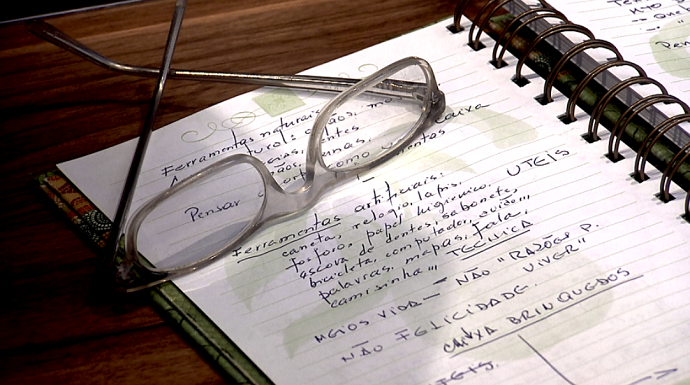 Ferramentas naturais
mãos, mo
dentes
caixa
Pensar
como
UTEIS
Ferramentas artificiais:
caneta, relogio, lapis,
fosforo, papel higienico,
escova de dentes, sabonete,
bicicleta, computador,
palavras, mapas, fala,
camisinha,,, TECNICA
MEIOS VIDA — NÃO "RAZÕES P.
VIVER"
NÃO FELICIDADE.
CAIXA BRINQUEDOS